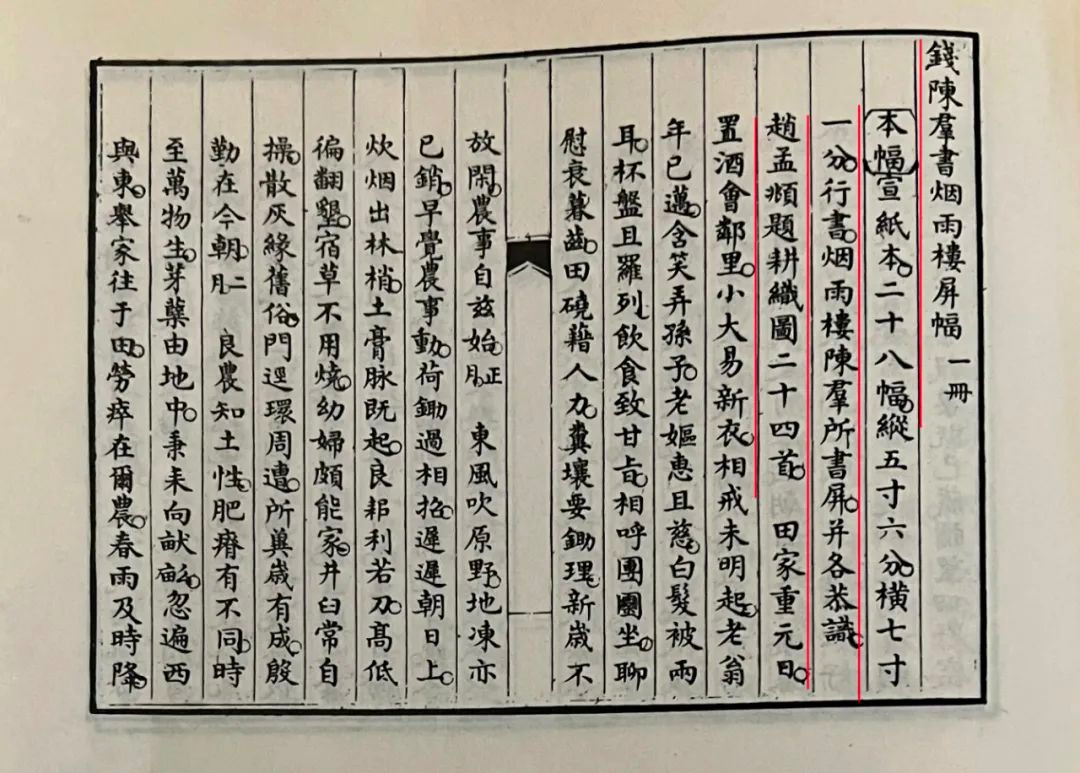 錢陳羣書烟雨樓屏幅 一冊
本幅宣紙本二十八幅縱五寸六分橫七寸
一分行書烟雨樓陳羣所書屏并各恭識
趙孟頫題耕織圖二十四首 田家重元日
置酒會鄰里小大易新衣相戒未明起老翁
年已邁含笑弄孫子老嫗惠且慈白髮被兩
耳杯盤且羅列飲食致甘旨相呼團圞坐聊
慰衰暮齒田磽藉人力糞壤要鋤理新歲不
放閑農事自茲始正月 東風吹原野地凍亦
已銷早覺農事動荷鋤過相招遲遲朝日上
炊烟出林梢土膏脉既起良耜利若刀高低
徧翻墾宿草不用燒幼婦頗能家井臼常自
操散灰緣舊俗門逕環周遭所兾歲有成殷
勤在今朝二月 良農知土性肥瘠有不同時
至萬物生芽蘖由地中秉耒向畎畝忽遍西
與東舉家往于田勞瘁在爾農春雨及時降